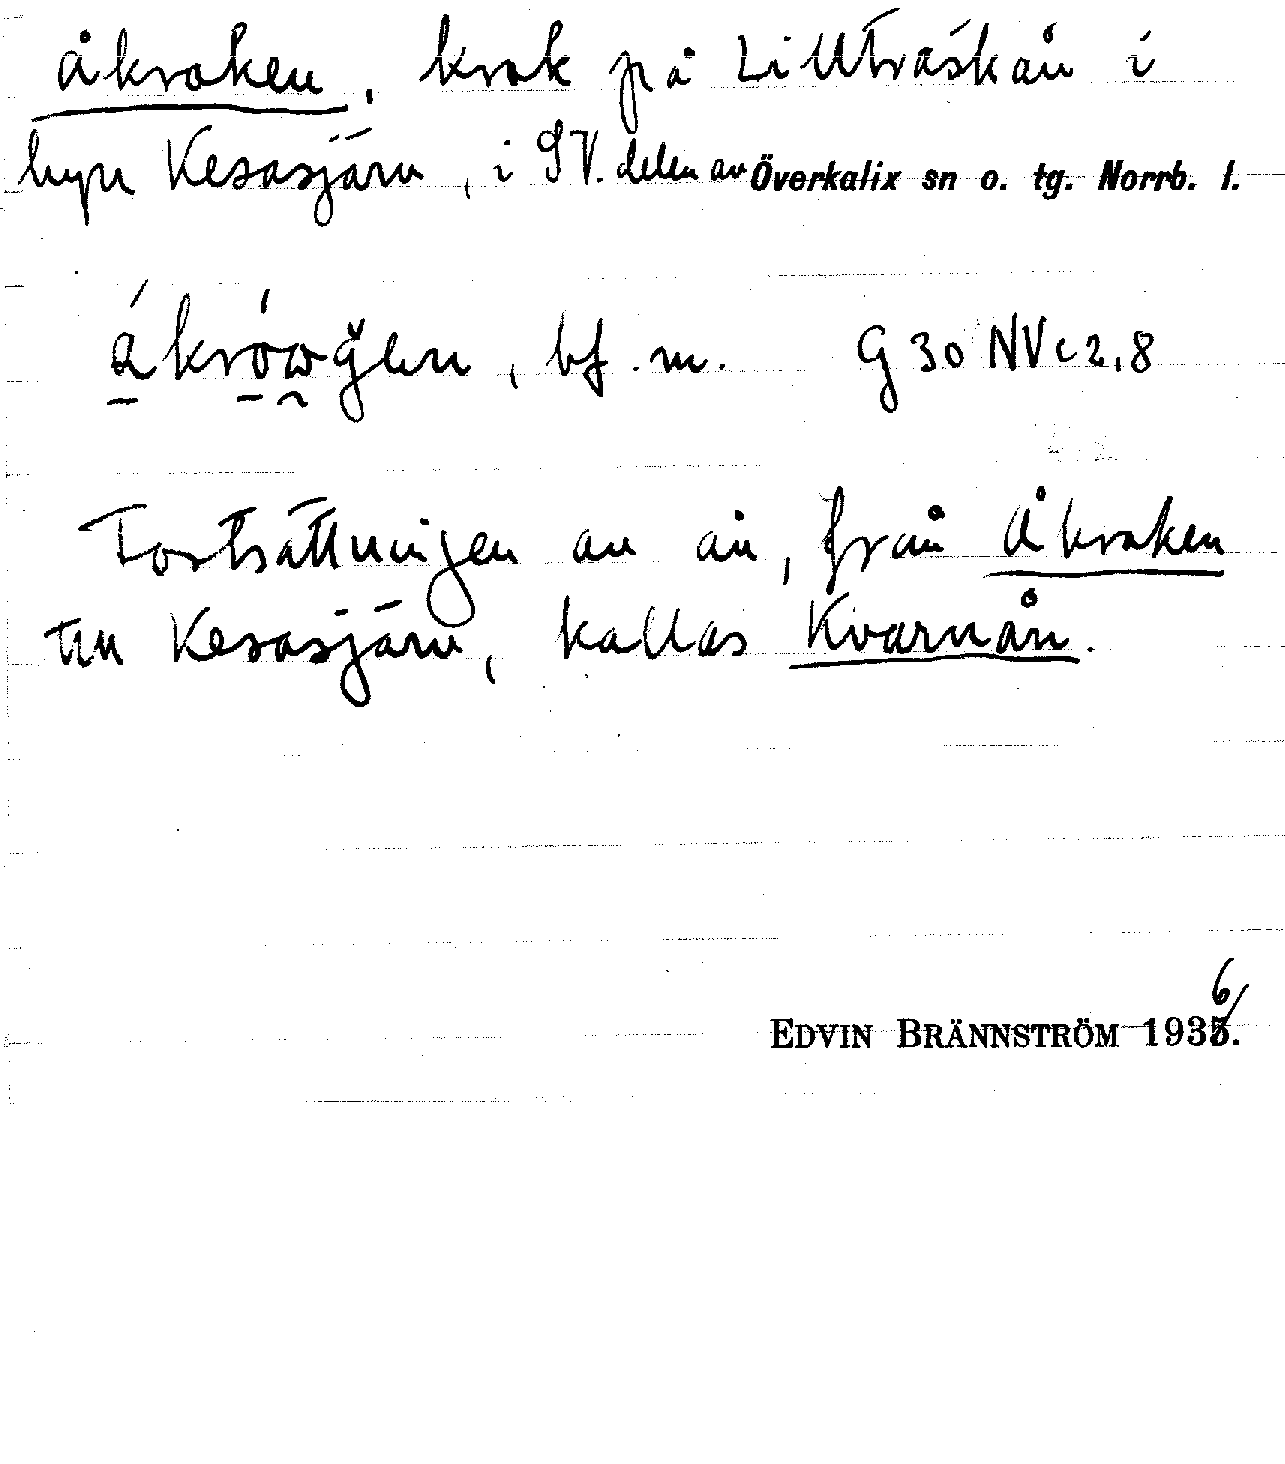 Åkroken, krok på Lillträskån i
byn Kesasjärv, i SV. delen av Överkalix sn o. tg. Norrb. l.
bf. m. G 30 NV c 2,8
Fortsättningen av ån, från Åkroken
till Kesasjärv, kallas Kvarnån.
6
EDVIN BRÄNNSTRÖM 1935.